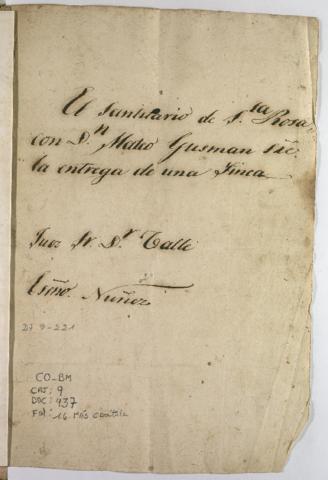 El Santuario de S.ta Rosa
con D.n Mateo Gusman sre
la entrega de una Finca
Juez Sr. D.r Calle
Esno. Nuñez
D7 9-221
CO-BM
CAJ: 9
DOC: 937
Fol: 16 más carátula